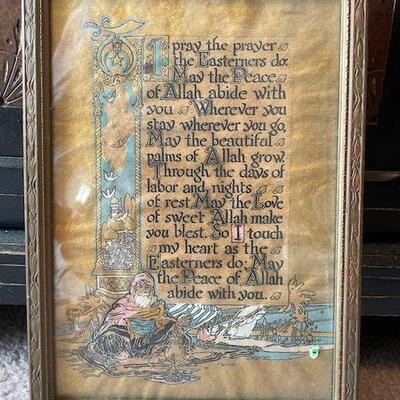 I pray the prayer
the Easterners do:
May the Peace
of Allah abide with
you. Wherever you
stay wherever you go,
May the beautiful
palms of Allah grow.
Through the days of
labor and nights
of rest. May the Love
of sweet Allah make
you blest. So I touch
my heart as the
Easterners do: May
the Peace of Allah
abide with you.